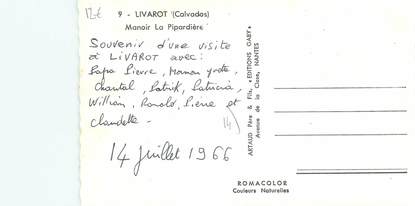 12€
9 - LIVAROT (Calvados)
Manoir La Pipardière
Souvenir d'une visite
à LIVAROT avec:
Papa Pierre, Maman Yvette,
Chantal, Patrick, Patricia,
William, Ronald, Pierre et
Claudette -
14 Juillet 1966
ARTAUD Père & Fils, "EDITIONS GABY"
Avenue de la Close, NANTES
ROMACOLOR
Couleurs Naturelles